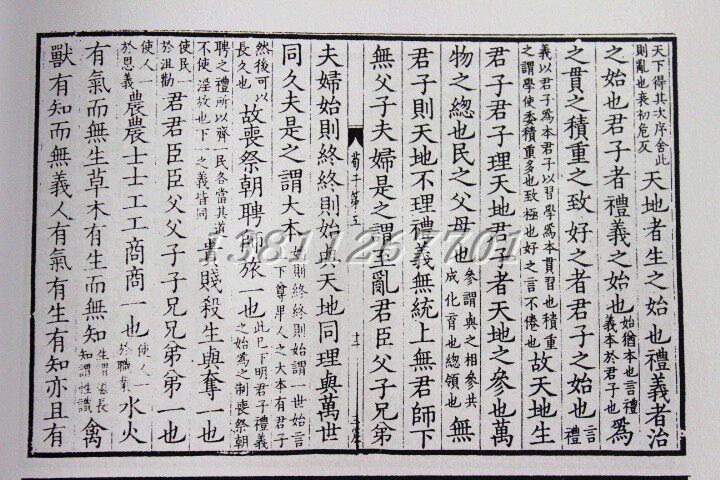 天下得其次序舍此則亂也衰初危反天地者生之始也禮義者治
之始也君子者禮義之始也始猶本也言禮義本於君子也為
之貫之積重之致好之者君子之始也言禮
義以君子為本君子以習學為本貫習也積重之謂學使委積重多也致極也好之言不倦也故天地生
君子君子理天地君子者天地之參也萬
物之總也民之父母也參謂與之相參共成化育也總領也無
君子則天地不理禮義無統上無君師下
無父子夫婦是之謂至亂君臣父子兄弟
荀子第五
十一
夫婦始則終終則始與天地同理與萬世
同久夫是之謂大本始則終終則始謂一世始言上下尊卑人之大本有君子
然後可以長久也故喪祭朝聘師旅一也此已下明君子禮義之始為之制喪祭朝
聘之禮所以齊一民各當其道不使淫放也下一之義皆同貴賤殺生與奪一也
使民一於沮勸君君臣臣父父子子兄兄弟弟一也
使人一於恩義農農士士工工商商一也使人一於職業水火
有氣而無生草木有生而無知生謂滋長知謂性識禽
獸有知而無義人有氣有生有知亦且有
13811267701